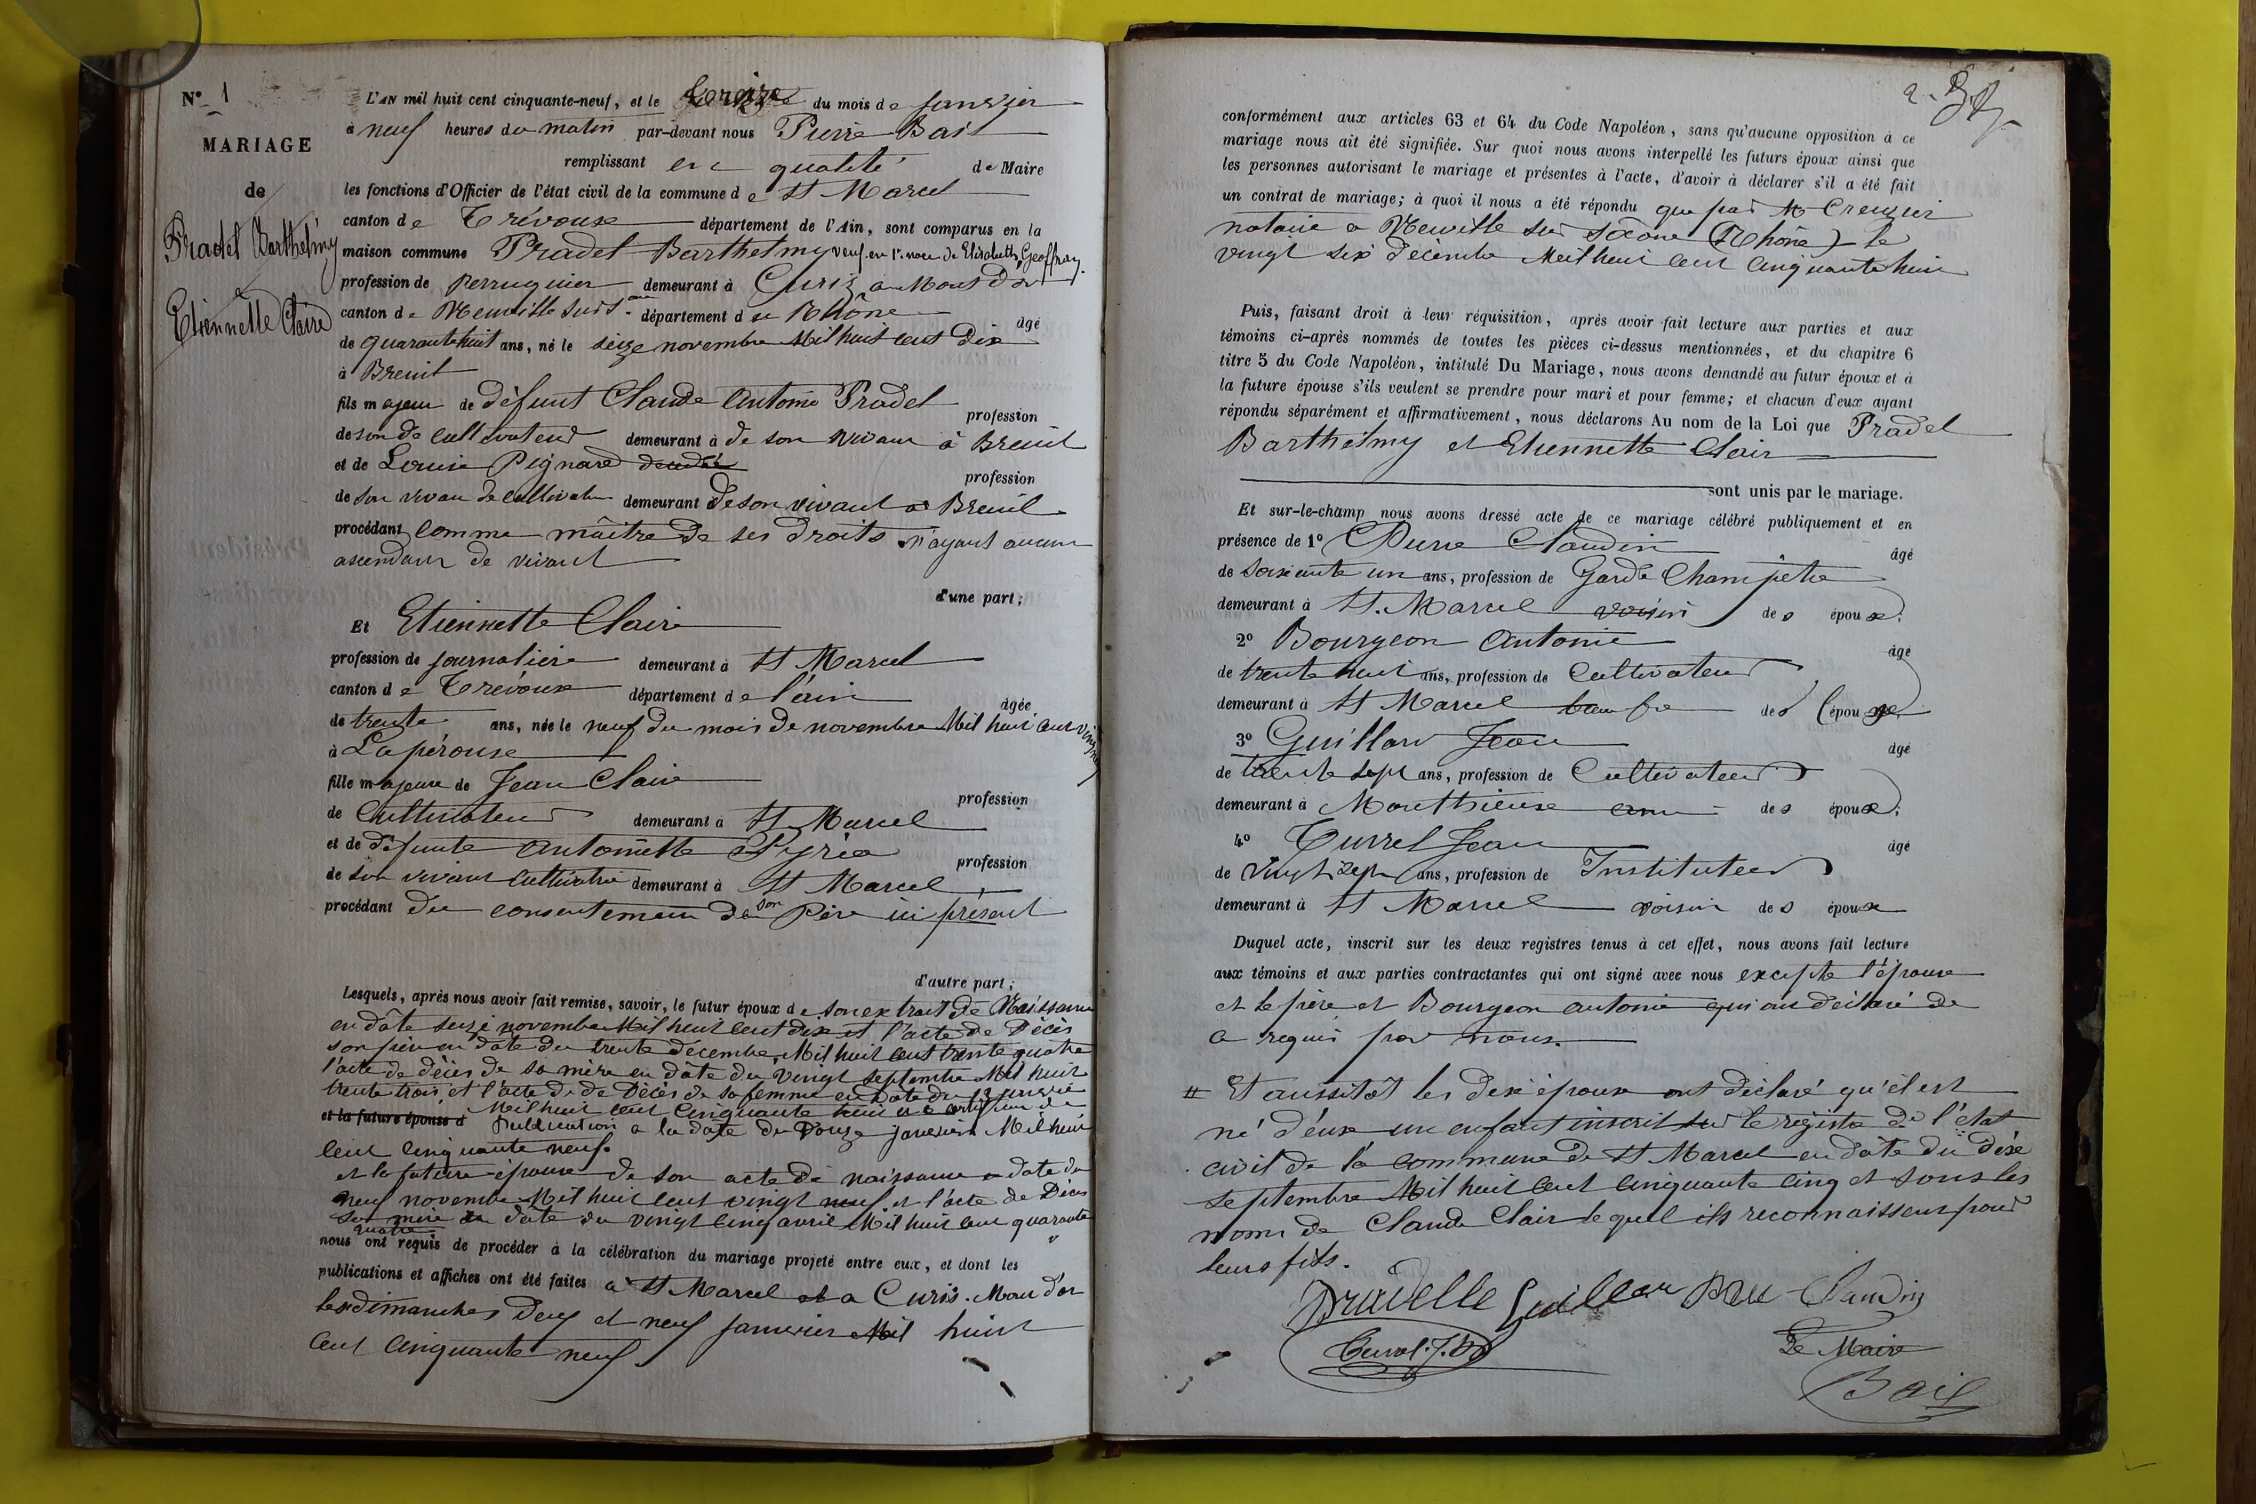 N° 1
MARIAGE
de
Pradel Barthelmy
&
Etiennette Claire
L'AN mil huit cent cinquante-neuf, et le treize du mois de Janvier
à neuf heures du matin par-devant nous Pierre Bail
remplissant en qualité de Maire
les fonctions d'Officier de l'état civil de la commune de St Marcel
canton de Trévoux département de l'Ain, sont comparus en la
maison commune Pradel Barthelmy veuf en 1re noce de Elisabeth Geoffray
profession de Perruquier demeurant à Curis au Mont d'or
canton de Neuville sur S.aone département du Rhône âgé
de quarante huit ans, né le seize novembre Mil huit cent dix
à Breuil
fils majeur de défunt Claude Antoine Pradel profession
de son de cultivateur demeurant à de son vivant à Breuil
et de Louise Pignard décédée profession
de son vivan de cultivat. demeurant de son vivant à Breuil
procédant comme maître de ses droits n'ayant aucun
ascendant de vivant
d'une part;
Et Etiennette Claire
profession de journaliere demeurant à St Marcel
canton de Trévoux département de l'ain âgée
de trente ans, née le neuf du mois de novembre Mil huit cent vingt
à Lapérouse
fille majeure de Jean Claire profession
de Cultivateur demeurant à St Marcel
et de défunte Antoinette profession
de son vivant cultivatrice demeurant à St Marcel
procédant du consentement de son Père ici présent
d'autre part;
Lesquels, après nous avoir fait remise, savoir, le futur époux de son extrait de Naissance
en dâte seize novembre Mil huit cent dix et l'acte de Décès
son père en dâte du trente décembre Mil huit cent trente quatre
l'acte de décès de sa mère en dâte du vingt septembre Mil huit
trente trois et l'acte de de Décès de sa femme en date du 13 janvier
et la future épouse d Mil huit cent cinquante huit et certificat de
Publication a la date du Douze janvier Mil huit
cent cinquante neuf.
et la future épouse de son acte de naissance a date du
neuf novembre Mil huit cent vingt neuf et l'acte de Décès
sa mère en dâte du vingt cinq avril Mil huit cent quarante
quatre
nous ont requis de procéder à la célébration du mariage projeté entre eux, et dont les
publications et affiches ont été faites à St Marcel et a Curis. Mon d'or
les dimanches deux et neuf Janvier Mil huit
cent cinquante neuf
conformément aux articles 63 et 64 du Code Napoléon, sans qu'aucune opposition à ce
mariage nous ait été signifiée. Sur quoi nous avons interpellé les futurs époux ainsi que
les personnes autorisant le mariage et présentes à l'acte, d'avoir à déclarer s'il a été fait
un contrat de mariage; à quoi il nous a été répondu que par Me Creuzier
notaire a Neuville sur Sâone (Rhône) le
vingt six décembre Mil huit cent cinquante huit
Puis, faisant droit à leur réquisition, après avoir fait lecture aux parties et aux
témoins ci-après nommés de toutes les pièces ci-dessus mentionnées, et du chapitre 6
titre 5 du Code Napoléon, intitulé Du Mariage, nous avons demandé au futur époux et à
la future épouse s'ils veulent se prendre pour mari et pour femme; et chacun d'eux ayant
répondu séparément et affirmativement, nous déclarons Au nom de la Loi que Pradel
Barthélmy et Etiennette Clair
sont unis par le mariage.
Et sur-le-champ nous avons dressé acte de ce mariage célébré publiquement et en
présence de 1° Pierre Claudin âgé
de soixante un ans, profession de Garde Champêtre
demeurant à St. Marcel voisin des époux.
2° Bourgeon Antoine âgé
de trente huit ans, profession de Cultivateur
demeurant à St Marcel beau fre de l'épouse
3° Guillard Jean âgé
de trente sept ans, profession de Cultivateur
demeurant à Monthieux ami des époux;
4° Curvel Jean âgé
de vingt sept ans, profession de Instituteur
demeurant à St Marcel voisin des époux
Duquel acte, inscrit sur les deux registres tenus à cet effet, nous avons fait lecture
aux témoins et aux parties contractantes qui ont signé avec nous excepte l'épouse
et le père et Bourgeon Antoine qui ont déclaré de
a requis par nous.
# Et aussitôt les dix époux ont déclaré qu'il est
né d'eux un enfant inscrit sur le registre de l'état
civil de la commune de St Marcel en dâte du dix
septembre Mil huit cent cinquante cinq et sous les
noms de Claude Clair lequel ils reconnaissent pour
leurs fils.
Pradelle Guillear Claudin
Curvel. J.
Le Maire
Bail